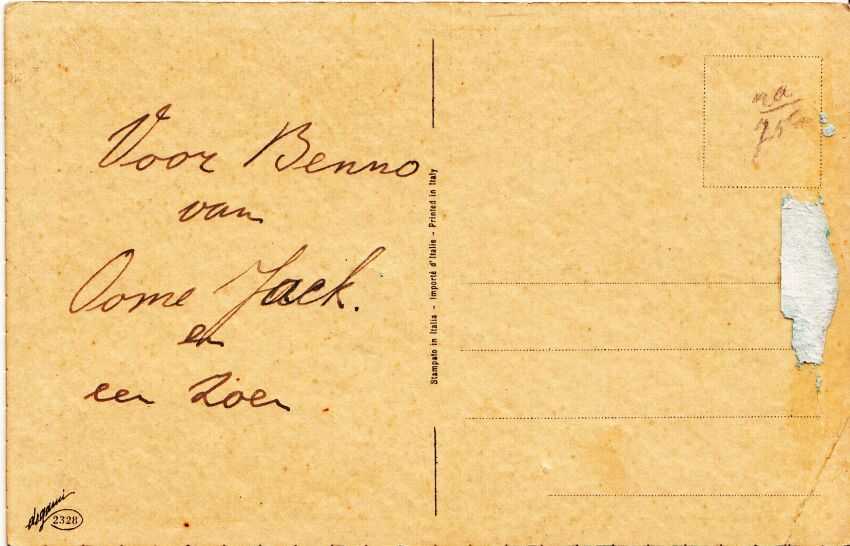 Voor Benno
van
Oome Jack.
en
een zoen
Stampato in Italia - Importé d'Italie - Printed in Italy
na
75
degami
2328